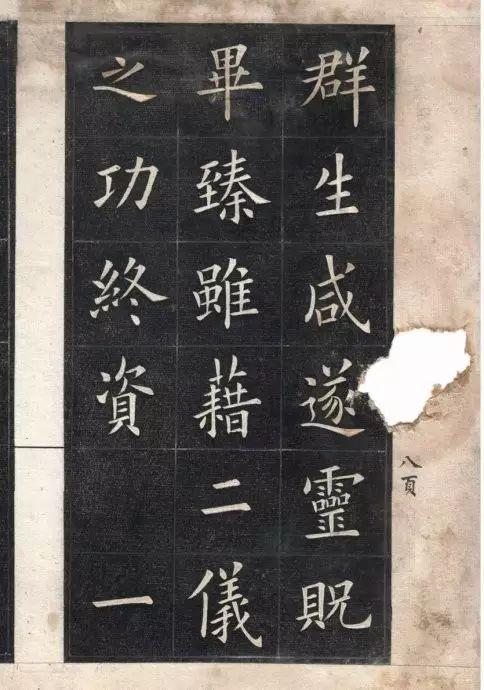 群生咸遂靈貺
畢臻雖藉二儀
之功終資 一
八頁